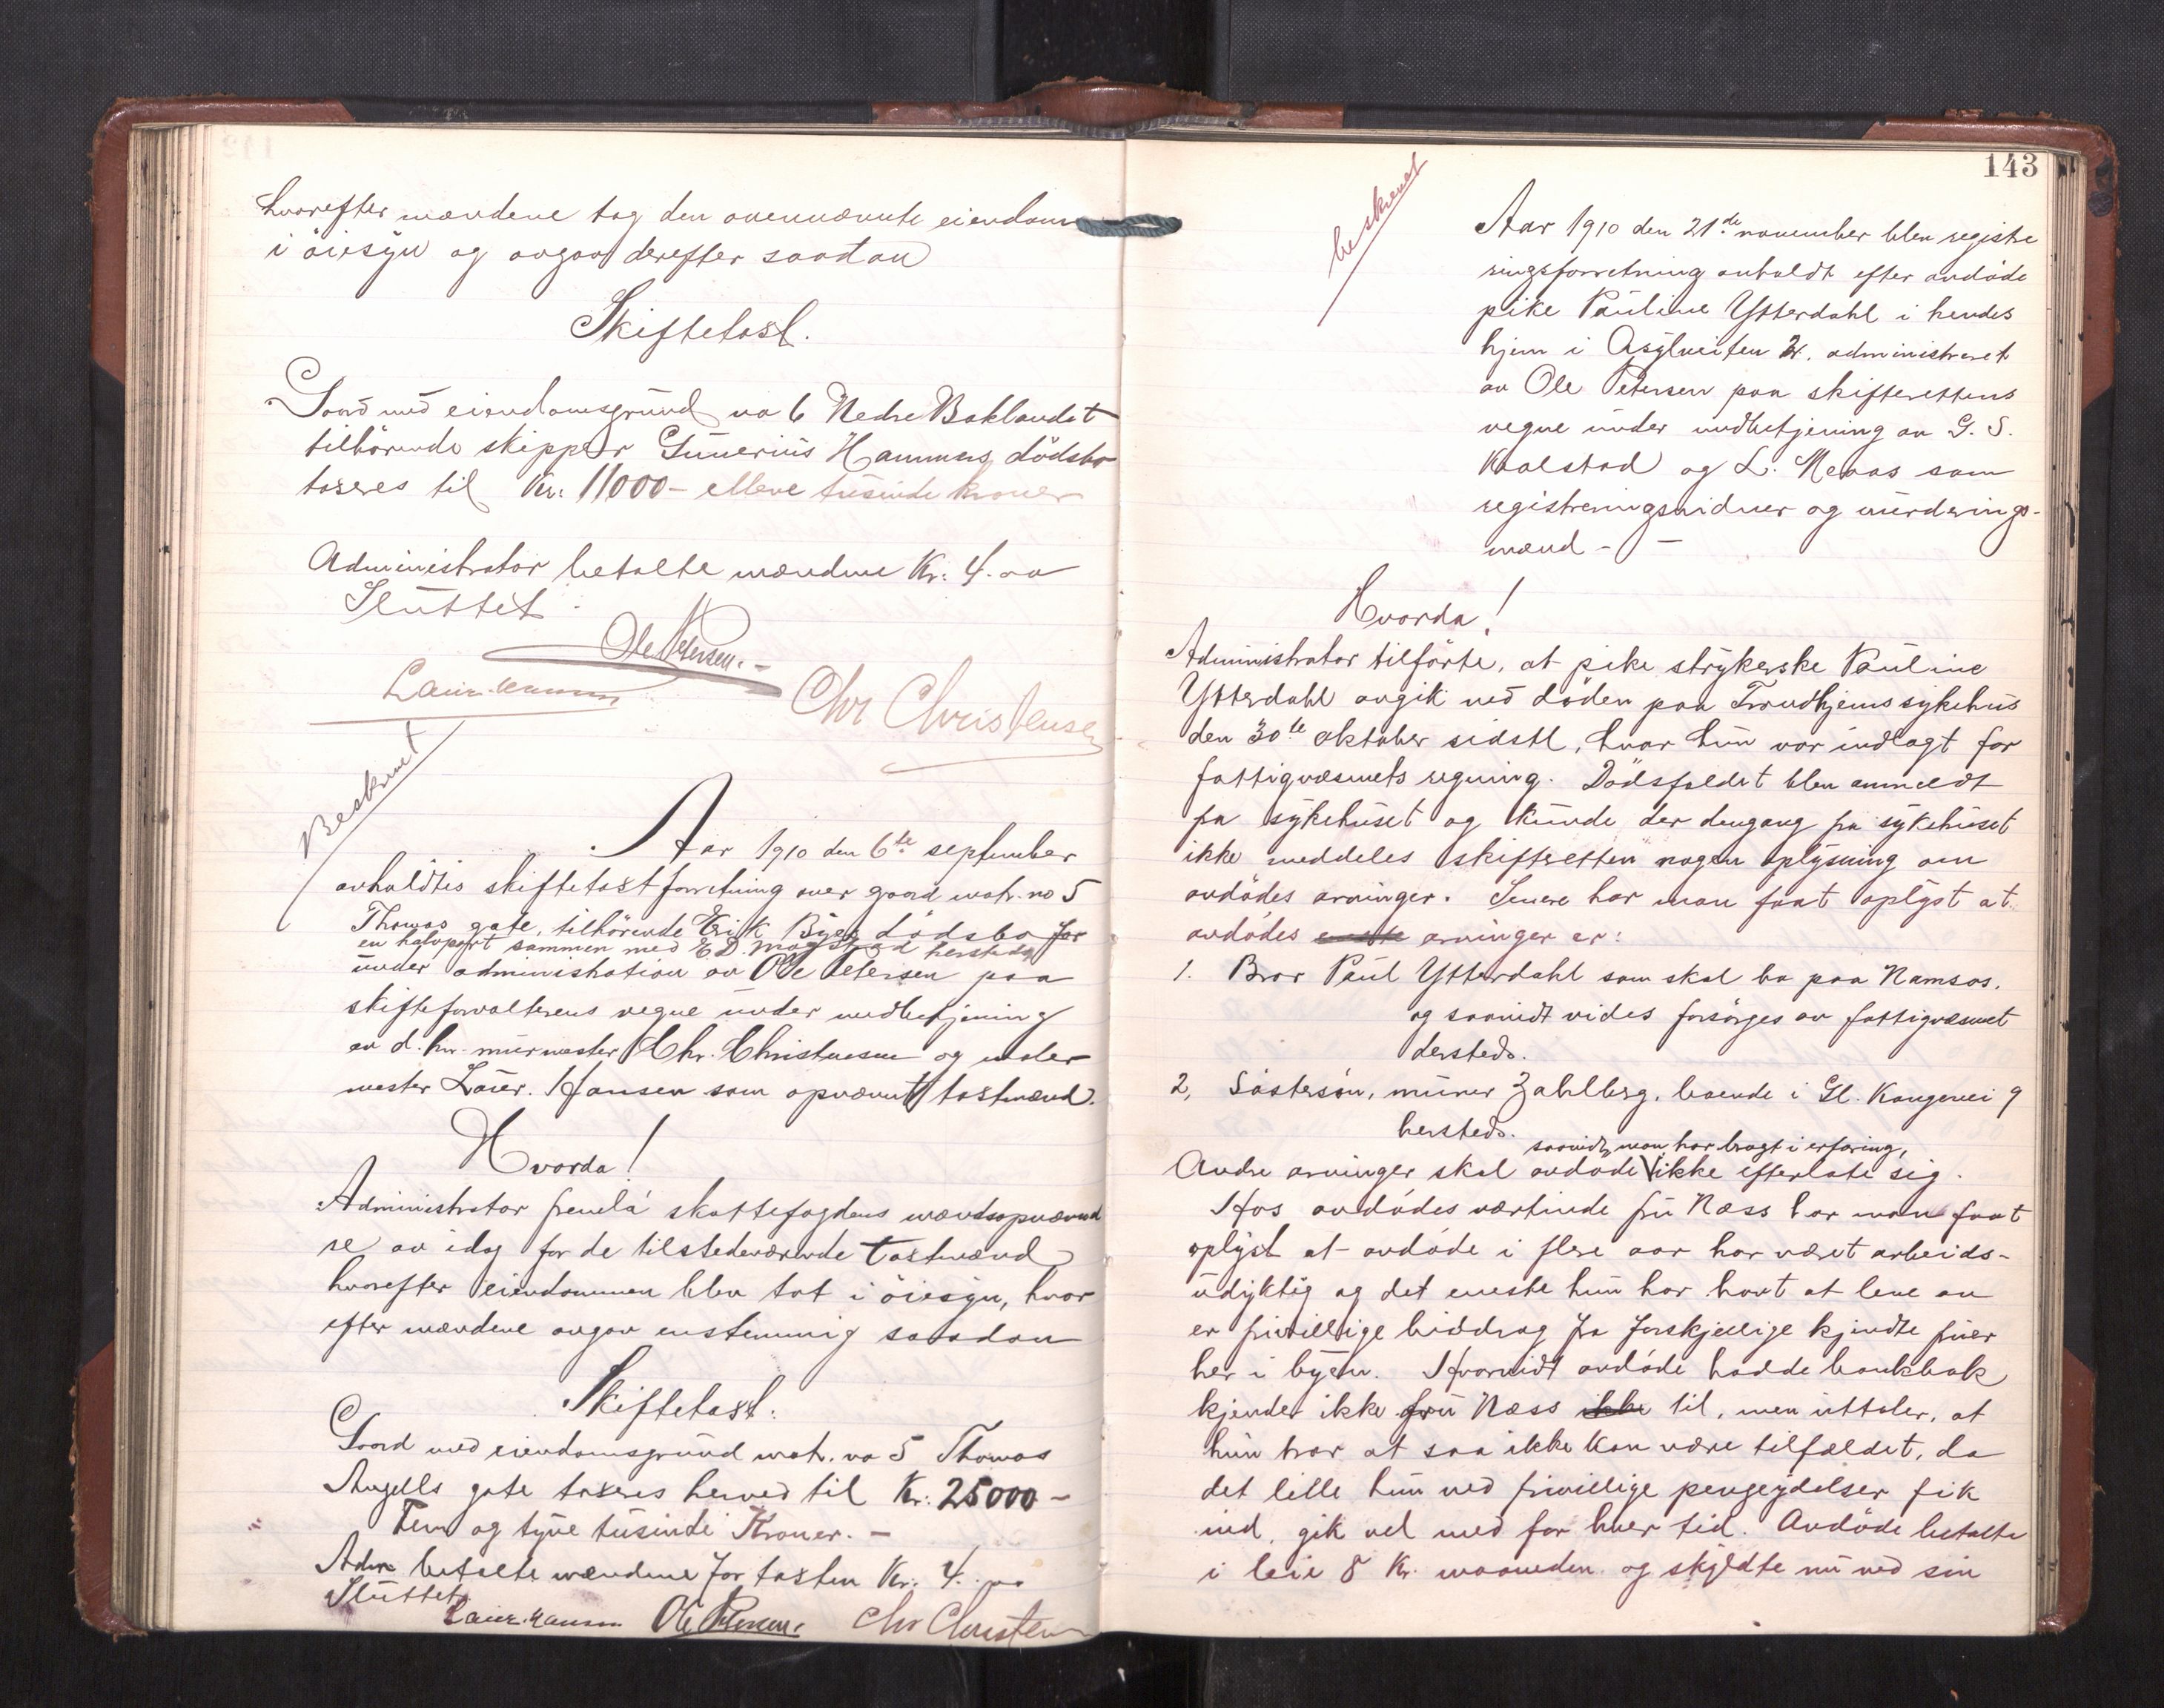 hvorefter mændene tog den ovennævnte eiendom
i öiesyn og avgav derefter saadan
Skiftetakst.
Gaard med eiendomsgrund no 6 Nedre Baklandet
tilhörende skipper Gunerius Hammers dödsbo
taxeres til Kr: 11000 - elleve tusinde kroner
Administrator betalte mændene Kr: 4. oo
Sluttet.
Ole Petersen.-
Laur. Hansen
Chr Christensen
Beskrevet
Aar 1910 den 6te september
avholdtes skiftetakstforretning over gaard matr. no 5
Thomas gate, tilhörende Erik Byes dödsbo for
en halvpart sammen med E D. Magstad hersteds
under administration av Ole Petersen paa
skifteforvalterens vegne under medbetjening
av d. hr. murmester Chr. Christensen og maler
mester Laur. Hansen som opnævnt takstmænd.
Hvorda!
Administrator fremla skattefogdens mændsopnævnel
se av idag for de tilstedeværende takstmænd
hvorefter eiendommen blev tat i öiesyn, hvor
efter mændene avgav enstemmig saadan
Skiftetakst:
Gaard med eiendomsgrund matr. no 5 Thomas
Angells gate taxeres herved til Kr: 25000 -
Fem og tyve tusinde Kroner. -
Adm betalte mændene for taksten Kr: 4. oo
Sluttet
Laur. Hansen Ole Petersen. Chr Christensen
143
beskrevet
Aar 1910 den 21de november blev registre
ringsforretning anholdt efter avdöde
pike Pauline Ytterdahl i hendes
hjem i Asylveiten 2. administreret
av Ole Petersen paa skifterettens
vegne under medbetjening av G. S.
Kaalstad og L. Nevas som
registreringsvidner og vurderings-
mænd - -
Hvorda!
Administrator tilförte, at pike strykerske Pauline
Ytterdahl avgik ved döden paa Trondhjems sykehus
den 30te oktober sidstl, hvor hun var indlagt for
fattigvæsenets regning. Dödsfaldet blev anmeldt
fra sykehuset og kunde der dengang fra sykehuset
ikke meddeles skifteretten nogen oplysning om
avdödes arvinger. Senere har man faat oplyst at
avdödes eneste arvinger er:
1. Bror Paul Ytterdahl som skal bo paa Namsos,
og saavidt vides forsörges av fattigvæsenet
dersteds.
2, Sösterson, murer Zahlberg, boende i Gl. Kongevei 9
hersteds.
saavidt man har bragt i erfaring,
Andre arvinger skal avdöde ikke efterlate sig.
Hos avdödes værtinde fru Næss har man faat
oplyst at avdöde i flere aar har været arbeids-
udyktig og det eneste hun har havt at leve av
er frivillige bidrag fra forskjellige kjendte fruer
her i byen. Hvorvidt avdöde hadde bankbok
kjender ikke fru Næss ikke til, men uttaler, at
hun tror at saa ikke kan være tilfældet, da
det lille hun ved frivillige pengeydelser fik
ind, gik vel med for hver tid. Avdöde betalte
i leie 8 Kr. maaneden og skyldte nu ved sin